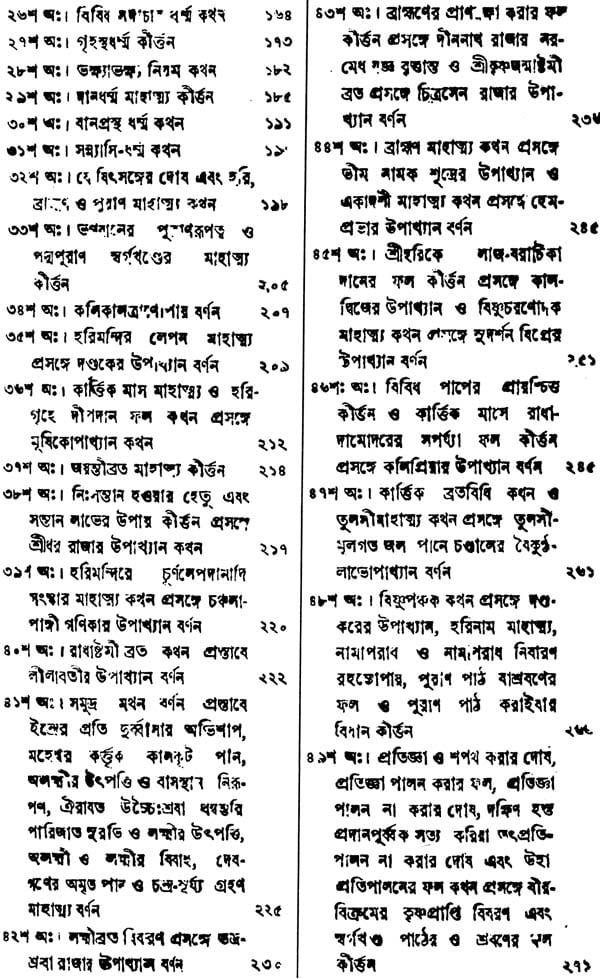 ২৬শ অঃ। বিবিধ সদাচার ধর্ম্ম কথন ১৬৪
২৭শ অঃ। গৃহস্থধর্ম্ম কীর্ত্তন ১৭৩
২৮শ অঃ। ভক্ষ্যাভক্ষ্য নিয়ম কথন ১৮২
২৯শ অঃ। দানধর্ম্ম মাহাত্ম্য কীর্ত্তন ১৮৫
৩০শ অঃ। বানপ্রস্থ ধর্ম্ম কথন ১৯১
৩১শ অঃ। সন্ন্যাসি-ধর্ম্ম কথন
৩২শ অঃ। যোষিৎসঙ্গের দোষ এবং হরি,
ব্রাহ্মণ ও পুরাণ মাহাত্ম্য কথন ১৯৮
৩৩শ অঃ। ভগবানের পুরাণরূপত্ব ও
পদ্মপুরাণ স্বর্গখণ্ডের মাহাত্ম্য
কীর্ত্তন ২০৫
৩৪শ অঃ। কলিকালত্রাণোপায় বর্ণন ২০৭
৩৫শ অঃ। হরিমন্দির লেপন মাহাত্ম্য
প্রসঙ্গে দণ্ডকের উপাখ্যান বর্ণন ২০৯
৩৬শ অঃ। কার্ত্তিক মাস মাহাত্ম্য ও হরি-
গৃহে দীপদান ফল কথন প্রসঙ্গে
মূষিকোপাখ্যান কথন ২১২
৩৭শ অঃ। জয়ন্তীব্রত মাহাত্ম্য কীর্ত্তন ২১৪
৩৮শ অঃ। নিঃসন্তান হওয়ার হেতু এবং
সন্তান লাভের উপায় কীর্ত্তন প্রসঙ্গে
শ্রীধর রাজার উপাখ্যান কথন ২১৭
৩৯শ অঃ। হরিমন্দিরে চূর্ণলেপদানাদি
সংস্কার মাহাত্ম্য কথন প্রসঙ্গে চঞ্চলা-
পাঙ্গী গণিকার উপাখ্যান বর্ণন ২২০
৪০শ অঃ। রাধাষ্টমী ব্রত কথন প্রস্তাবে
লীলাবতীর উপাখ্যান বর্ণন ২২২
৪১শ অঃ। সমুদ্র মথন বর্ণন প্রস্তাবে
ইন্দ্রের প্রতি দুর্ব্বাসার অভিশাপ,
মহেশ্বর কর্ত্তৃক কালকূট পান,
অলক্ষ্মীর উৎপত্তি ও বাসস্থান নিরূ-
পণ, ঐরাবত উচ্চৈঃশ্রবা ধন্বন্তরি
পারিজাত সুরভি ও লক্ষ্মীর উৎপত্তি,
অলক্ষ্মী ও লক্ষ্মীর বিবাহ, দেব-
গণের অমৃত পান ও চন্দ্র-সূর্য্য গ্রহণ
মাহাত্ম্য বর্ণন ২২৫
৪২শ অঃ। লক্ষ্মীব্রত বিবরণ প্রসঙ্গে ভদ্র-
শ্রবা রাজার উপাখ্যান বর্ণন ২৩০
৪৩শ অঃ। ব্রাহ্মণের প্রাণরক্ষা করার ফল
কীর্ত্তন প্রসঙ্গে দীননাথ রাজার নর-
মেধ যজ্ঞ বৃত্তান্ত ও শ্রীকৃষ্ণজন্মাষ্টমী
ব্রত প্রসঙ্গে চিত্রসেন রাজার উপা-
খ্যান বর্ণন ২৩৬
৪৪শ অঃ। ব্রাহ্মণ মাহাত্ম্য কথন প্রসঙ্গে
ভীম নামক শূদ্রের উপাখ্যান ও
একাদশী মাহাত্ম্য কথন প্রসঙ্গে হেম-
প্রভার উপাখ্যান বর্ণন ২৪৫
৪৫শ অঃ। শ্রীহরিকে লাজ-বরাটিকা
দানের ফল কীর্ত্তন প্রসঙ্গে কাল-
দ্বিজের উপাখ্যান ও বিষ্ণুচরণোদক
মাহাত্ম্য কথন প্রসঙ্গে সুদর্শন বিপ্রের
উপাখ্যান বর্ণন ২৫১
৪৬শঃ অঃ। বিবিধ পাপের প্রায়শ্চিত্ত
কীর্ত্তন ও কার্ত্তিক মাসে রাধা-
দামোদরের সপর্য্যা ফল কীর্ত্তন
প্রসঙ্গে কলিপ্রিয়ার উপাখ্যান বর্ণন ২৪৫
৪৭শ অঃ। কার্ত্তিক ব্রতবিধি কথন ও
তুলসীমাহাত্ম্য কথন প্রসঙ্গে তুলসী-
মূলগত জল পানে চণ্ডালের বৈকুণ্ঠ-
লাভোপাখ্যান বর্ণন ২৬১
৪৮শ অঃ। বিষ্ণুপঞ্চক কথন প্রসঙ্গে দণ্ড-
করের উপাখ্যান, হরিনাম মাহাত্ম্য,
নামাপরাধ ও নামাপরাধ নিবারণ
রহস্যোপায়, পুরাণ পাঠ বা শ্রবণের
ফল ও পুরাণ পাঠ করাইবার
বিধান কীর্ত্তন ২৬৬
৪৯শ অঃ। প্রতিজ্ঞা ও শপথ করার দোষ,
প্রতিজ্ঞা পালন করার ফল, প্রতিজ্ঞা
পালন না করার দোষ, দক্ষিণ হস্ত
প্রদানপূর্ব্বক সত্য করিয়া তৎপ্রতি-
পালন না করার দোষ এবং উহা
প্রতিপালনের ফল কথন প্রসঙ্গে বীর-
বিক্রমের কৃষ্ণপ্রাপ্তি বিবরণ এবং
স্বর্গখণ্ড পাঠের ও শ্রবণের ফল
কীর্ত্তন ২৭১